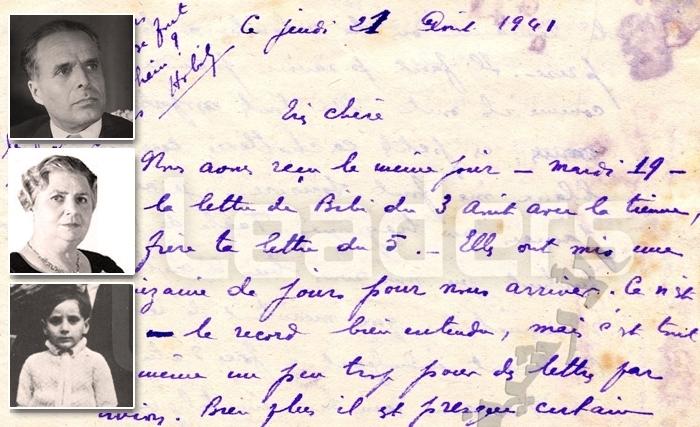 Ce jeudi 21 Août 1941
se fait
?
Habib
Très chère
Nous avons reçu le même jour – mardi 19 –
la lettre de Bibi du 3 Août avec la tienne,
frère ta lettre du 5. – Elles ont mis une
zaine de jours pour nous arriver. Ce n'est
– le record bien entendu, mais c'est tout
même un peu trop pour des lettres par
avion. Bien plus il est presque certain
Leaders